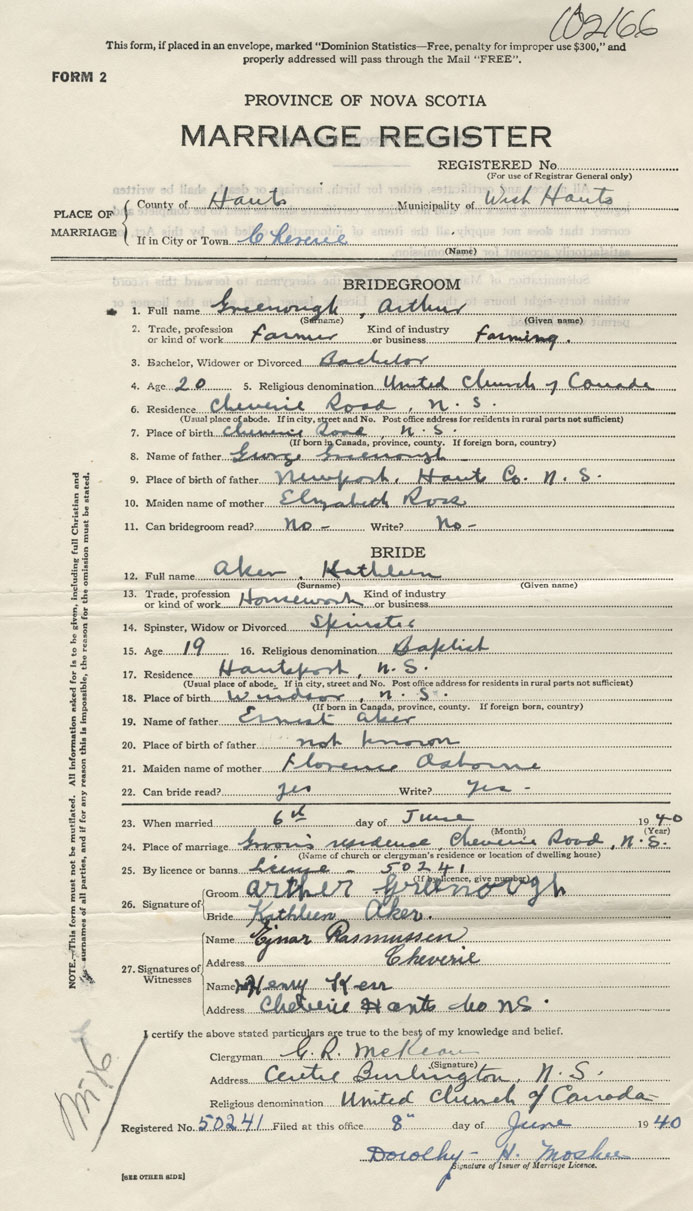 102166
This form, if placed in an envelope, marked "Dominion Statistics—Free, penalty for improper use $300," and
properly addressed will pass through the Mail "FREE".
FORM 2
PROVINCE OF NOVA SCOTIA
MARRIAGE REGISTER
REGISTERED No.
(For use of Registrar General only)
PLACE OF MARRIAGE
County of Hants Municipality of West Hants
If in City or Town Cheverie
(Name)
BRIDEGROOM
1. Full name Greenough, Arthur
(Surname) (Given name)
2. Trade, profession or kind of work Farmer Kind of industry or business Farming.
3. Bachelor, Widower or Divorced Bachelor
4. Age 20 5. Religious denomination United Church of Canada
6. Residence Cheverie Road, N.S.
(Usual place of abode. If in city, street and No. Post office address for residents in rural parts not sufficient)
7. Place of birth Cheverie Road, N.S.
(If born in Canada, province, county. If foreign born, country)
8. Name of father George Greenough
9. Place of birth of father Newport, Hants Co. N.S.
10. Maiden name of mother Elizabeth Ross
11. Can bridegroom read? No - Write? No -
BRIDE
12. Full name Aker, Kathleen
(Surname) (Given name)
13. Trade, profession or kind of work Housework Kind of industry or business
14. Spinster, Widow or Divorced Spinster
15. Age 19 16. Religious denomination Baptist
17. Residence Hantsport, N.S.
(Usual place of abode. If in city, street and No. Post office address for residents in rural parts not sufficient)
18. Place of birth Windsor, N.S.
(If born in Canada, province, county. If foreign born, country)
19. Name of father Ernest Aker
20. Place of birth of father not known
21. Maiden name of mother Florence Osborne
22. Can bride read? yes Write? Yes -
23. When married 6th day of June 1940
(Month) (Year)
24. Place of marriage Groom's residence, Cheverie Road, N.S.
(Name of church or clergyman's residence or location of dwelling house)
25. By licence or banns license - 50241
(If by licence, give number)
26. Signature of
Groom Arther Greenough
Bride Kathleen Aker.
27. Signatures of Witnesses
Name Ejnar Rasmussen
Address Cheverie
Name Henry Kerr
Address Cheverie Hants Co NS.
I certify the above stated particulars are true to the best of my knowledge and belief.
Clergyman G. R. McKean
(Signature)
Address Centre Burlington, N.S.
Religious denomination United Church of Canada
Registered No. 50241 Filed at this office 8" day of June 1940
Dorothy H. Mosher
Signature of Issuer of Marriage Licence.
[SEE OTHER SIDE]
NOTE.—This form must not be mutilated. All information asked for is to be given, including full Christian and
surnames of all parties, and if for any reason this is impossible, the reason for the omission must be stated.